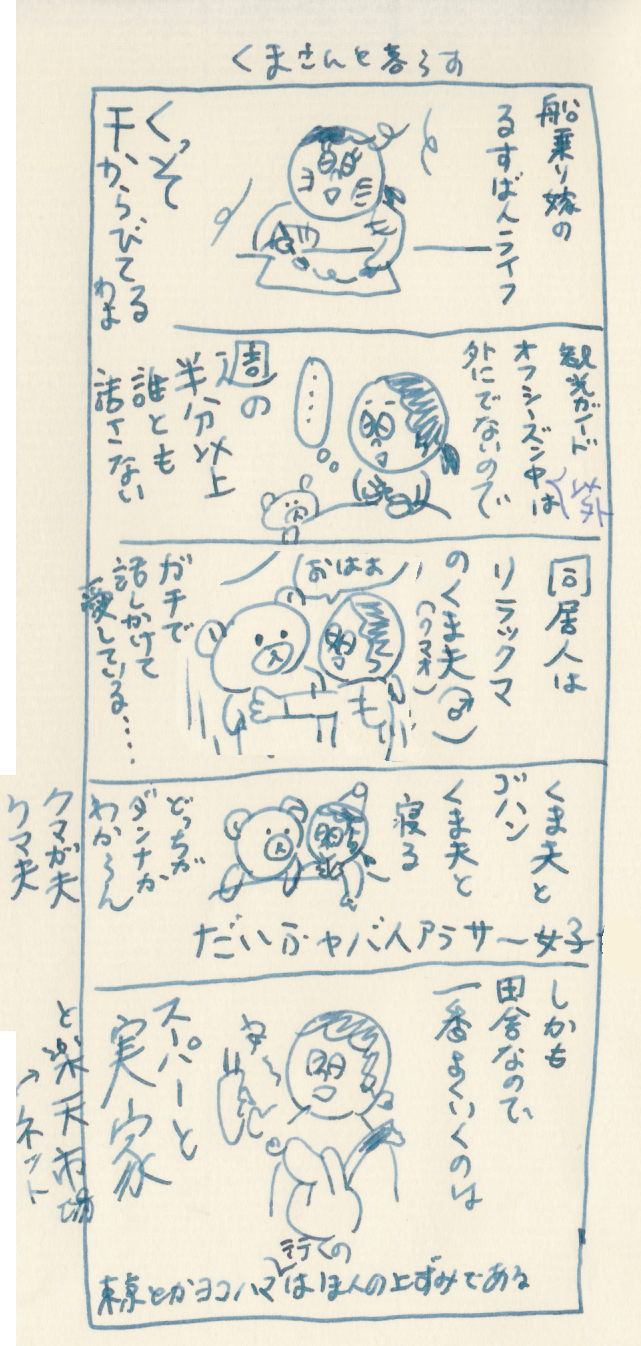 くまさんと暮らす
船乗り嫁の
るすばんライフ
くって
干からびてる
わよ
観光ガイド
オフシーズン中は
以外
外にでないので
‥‥
週の
半分以上
誰とも
話さない
同居人は
リラックマ
のくま夫(♂)
(クマオ)
おはよ
ガチで
話しかけて
愛している‥‥
くま夫と
ゴハン
くま夫と
寝る
どっちが
ダンナか
わからん
クマが夫
クマ夫
だいぶヤバイアラサ〜女子
しかも
田舎なので、
一番よくいくのは
スーパーと
実家
と楽天市場
↑ネット
東京とかヨコハマ行くのはほんの上ずみである